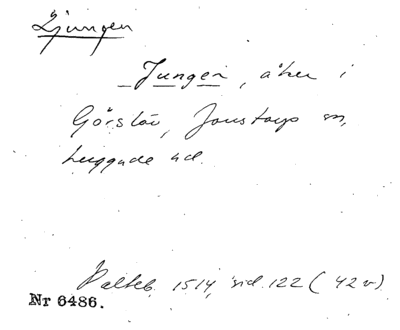 Ljungen
Jungen, åker i
Görslöv, Jonstorps sn,
Luggude hd.
Palteb. 1514, sid. 122 (42 v)
Nr 6486.